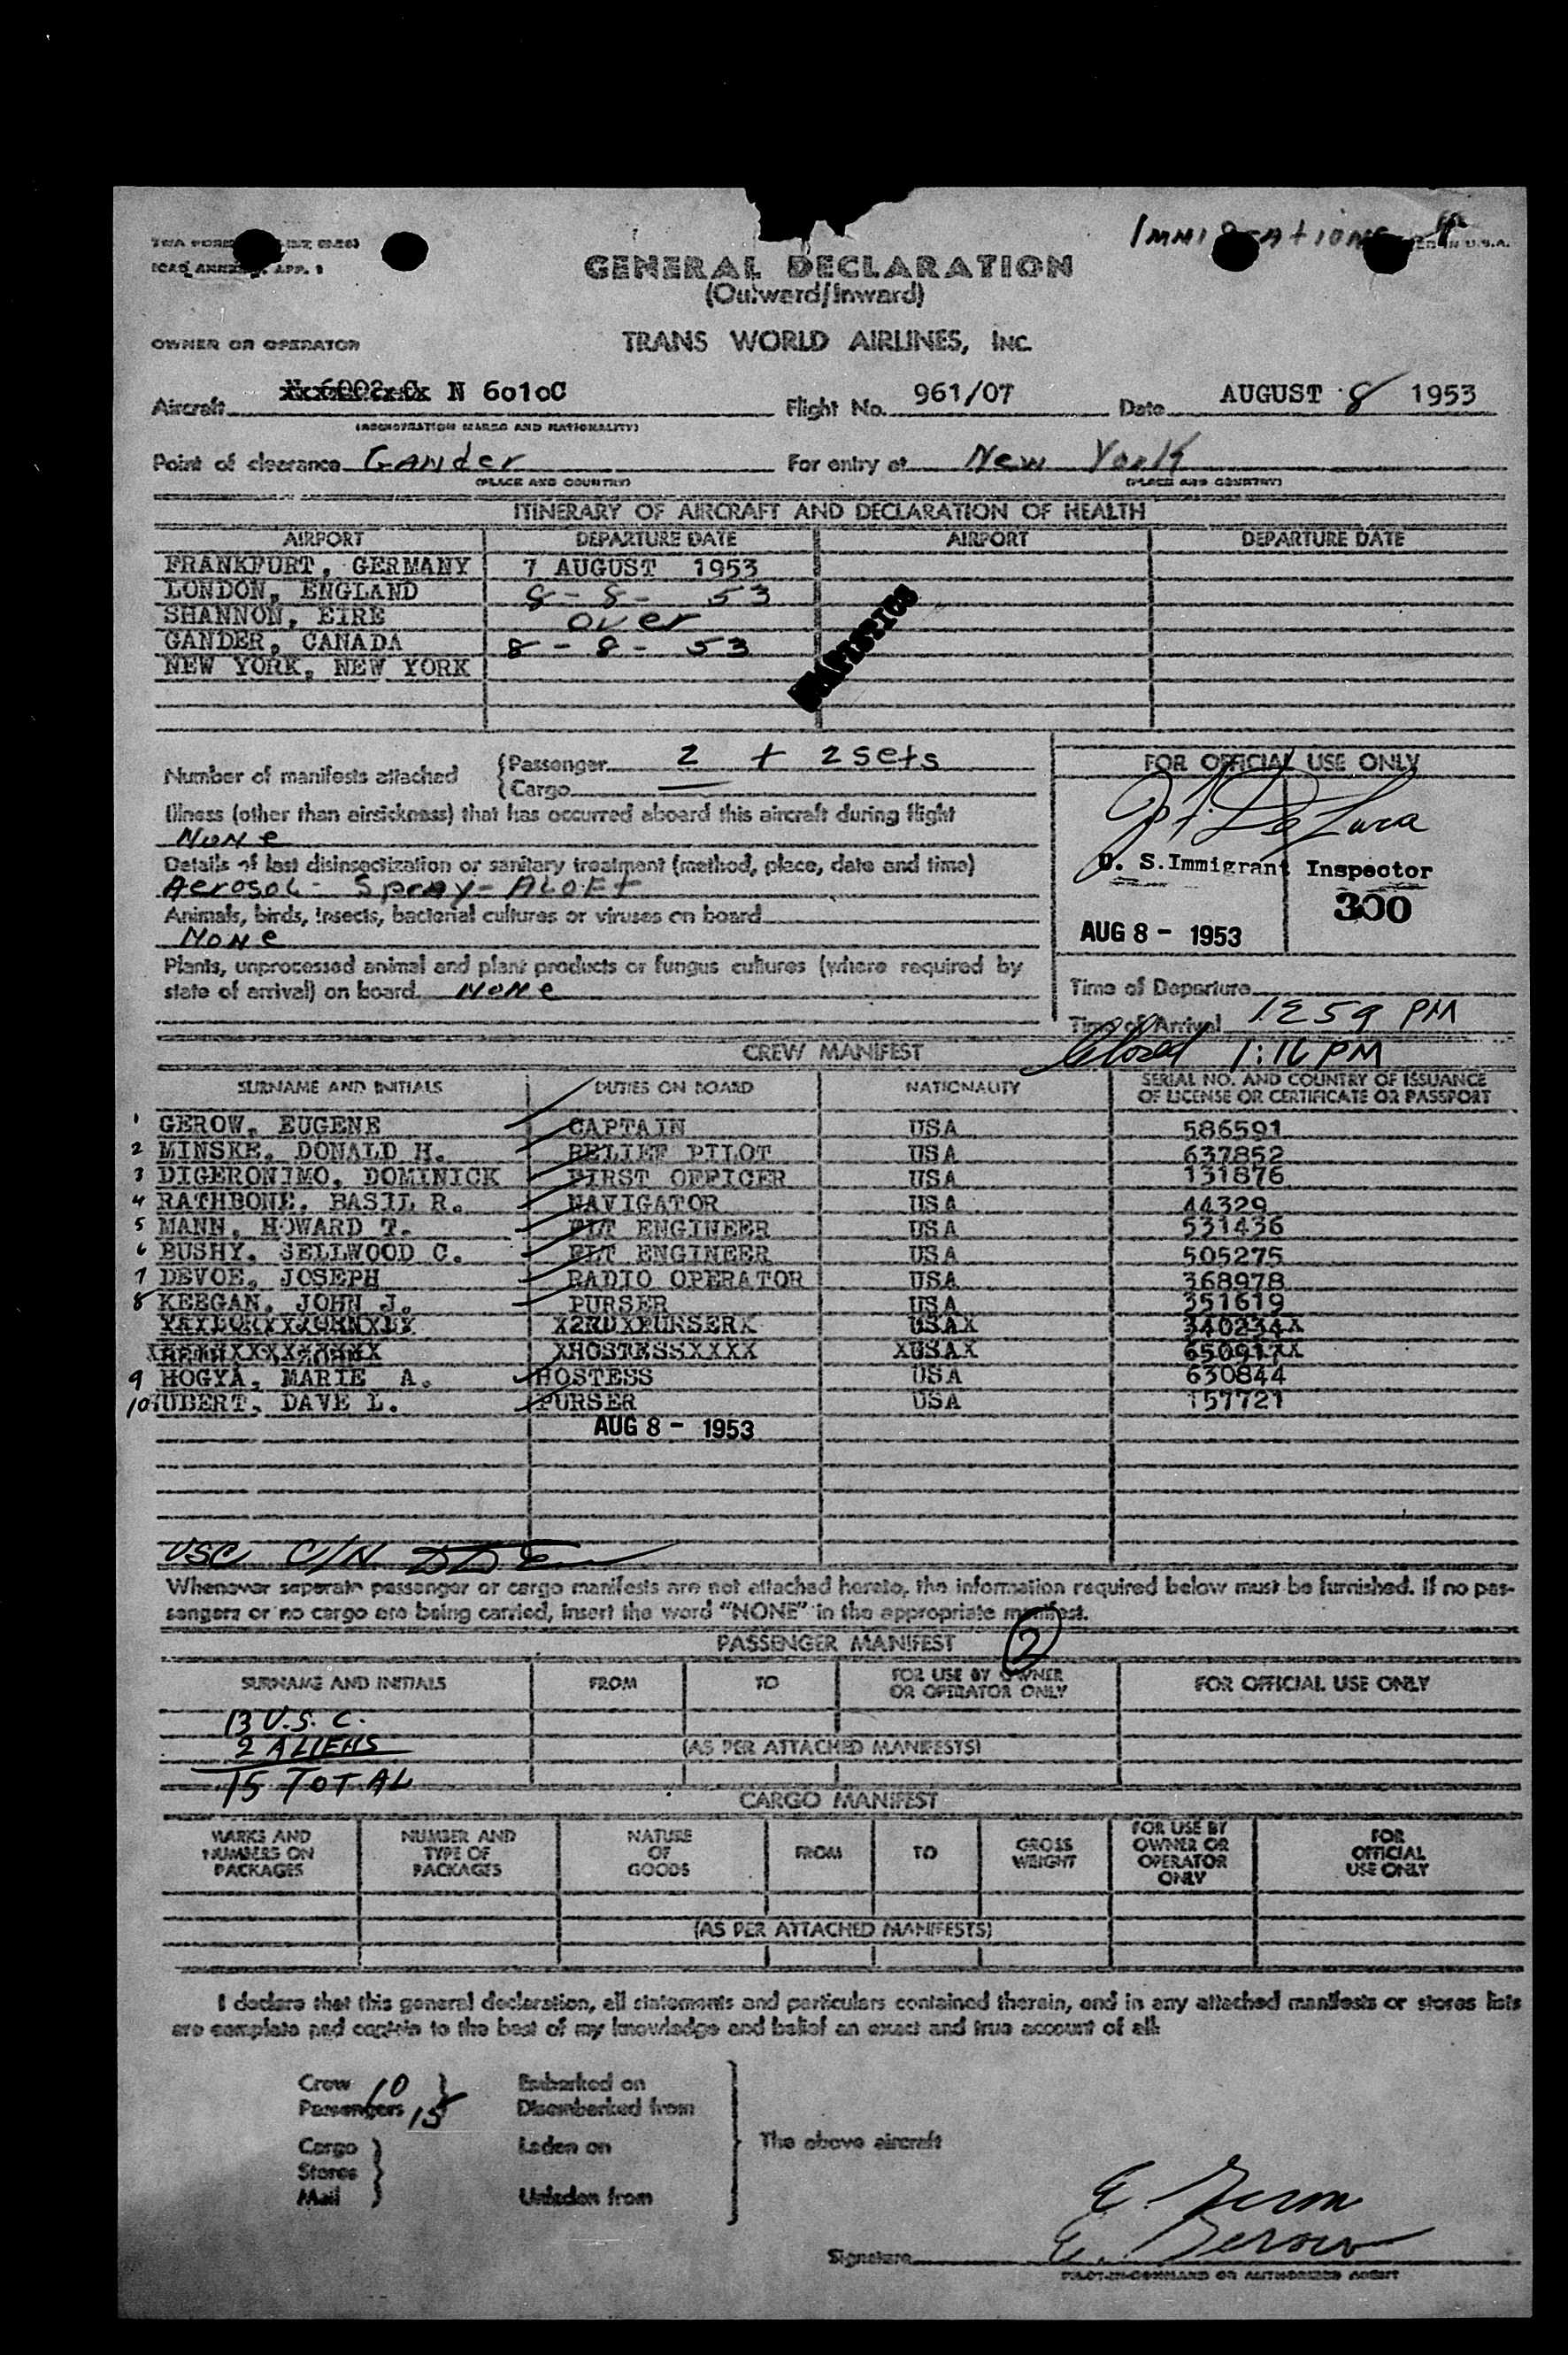 IMMIGRATIONS
ICAO ANNEX 9, APP. 1
GENERAL DECLARATION
(Outward/Inward)
OWNER OR OPERATOR TRANS WORLD AIRLINES, INC.
Aircraft N 6010C Flight No. 961/07 Date AUGUST 8 1953
(REGISTRATION MARKS AND NATIONALITY)
Point of clearance Gander For entry at New York
(PLACE AND COUNTRY) (PLACE AND COUNTRY)
ITINERARY OF AIRCRAFT AND DECLARATION OF HEALTH
AIRPORT DEPARTURE DATE AIRPORT DEPARTURE DATE
FRANKFURT, GERMANY 7 AUGUST 1953
LONDON, ENGLAND 8-8-53
SHANNON, EIRE over
GANDER, CANADA 8-8-53
NEW YORK, NEW YORK
Number of manifests attached {Passenger 2 + 2 sets
{Cargo —
Illness (other than airsickness) that has occurred aboard this aircraft during flight
None
Details of last disinsectization or sanitary treatment (method, place, date and time)
Aerosol-Spray-
Animals, birds, insects, bacterial cultures or viruses on board
None
Plants, unprocessed animal and plant products or fungus cultures (where required by
state of arrival) on board None
FOR OFFICIAL USE ONLY
U. S. Immigrant Inspector
300
AUG 8 - 1953
Time of Departure
Time of Arrival 1259 PM
Closed 1:16 PM
CREW MANIFEST
SURNAME AND INITIALS DUTIES ON BOARD NATIONALITY SERIAL NO. AND COUNTRY OF ISSUANCE
OF LICENSE OR CERTIFICATE OR PASSPORT
1 GEROW, EUGENE CAPTAIN USA 586591
2 MINSKE, DONALD H. RELIEF PILOT USA 637852
3 DIGERONIMO, DOMINICK FIRST OFFICER USA 131876
4 RATHBONE, BASIL R. NAVIGATOR USA 44329
5 MANN, HOWARD T. FLT ENGINEER USA 531436
6 BUSHY, SELLWOOD C. FLT ENGINEER USA 505275
7 DEVOE, JOSEPH RADIO OPERATOR USA 368978
8 KEEGAN, JOHN J. PURSER USA 351619
X2NDXPURSERX USAX 340234X
XHOSTESSXXXX XUSAX 650917XX
9 HOGYA, MARIE A. HOSTESS USA 630844
10 HUBERT, DAVE L. PURSER USA 157721
AUG 8 - 1953
USC C/N
Whenever separate passenger or cargo manifests are not attached hereto, the information required below must be furnished. If no pas-
sengers or no cargo are being carried, insert the word "NONE" in the appropriate manifest.
PASSENGER MANIFEST 2
SURNAME AND INITIALS FROM TO FOR USE BY OWNER
OR OPERATOR ONLY FOR OFFICIAL USE ONLY
13 U.S.C.
2 ALIENS
(AS PER ATTACHED MANIFESTS)
15 TOTAL
CARGO MANIFEST
MARKS AND
NUMBERS ON
PACKAGES
NUMBER AND
TYPE OF
PACKAGES
NATURE
OF
GOODS
FROM
TO
GROSS
WEIGHT
FOR USE BY
OWNER OR
OPERATOR
ONLY
FOR
OFFICIAL
USE ONLY
(AS PER ATTACHED MANIFESTS)
I declare that this general declaration, all statements and particulars contained therein, and in any attached manifests or stores lists
are complete and contain to the best of my knowledge and belief an exact and true account of all:
Crew 10 Embarked on
Passengers 15 Disembarked from
The above aircraft
Cargo Laden on
Stores
Mail Unladen from
E. Gerow
Signature E. Gerow
PILOT-IN-COMMAND OR AUTHORIZED AGENT